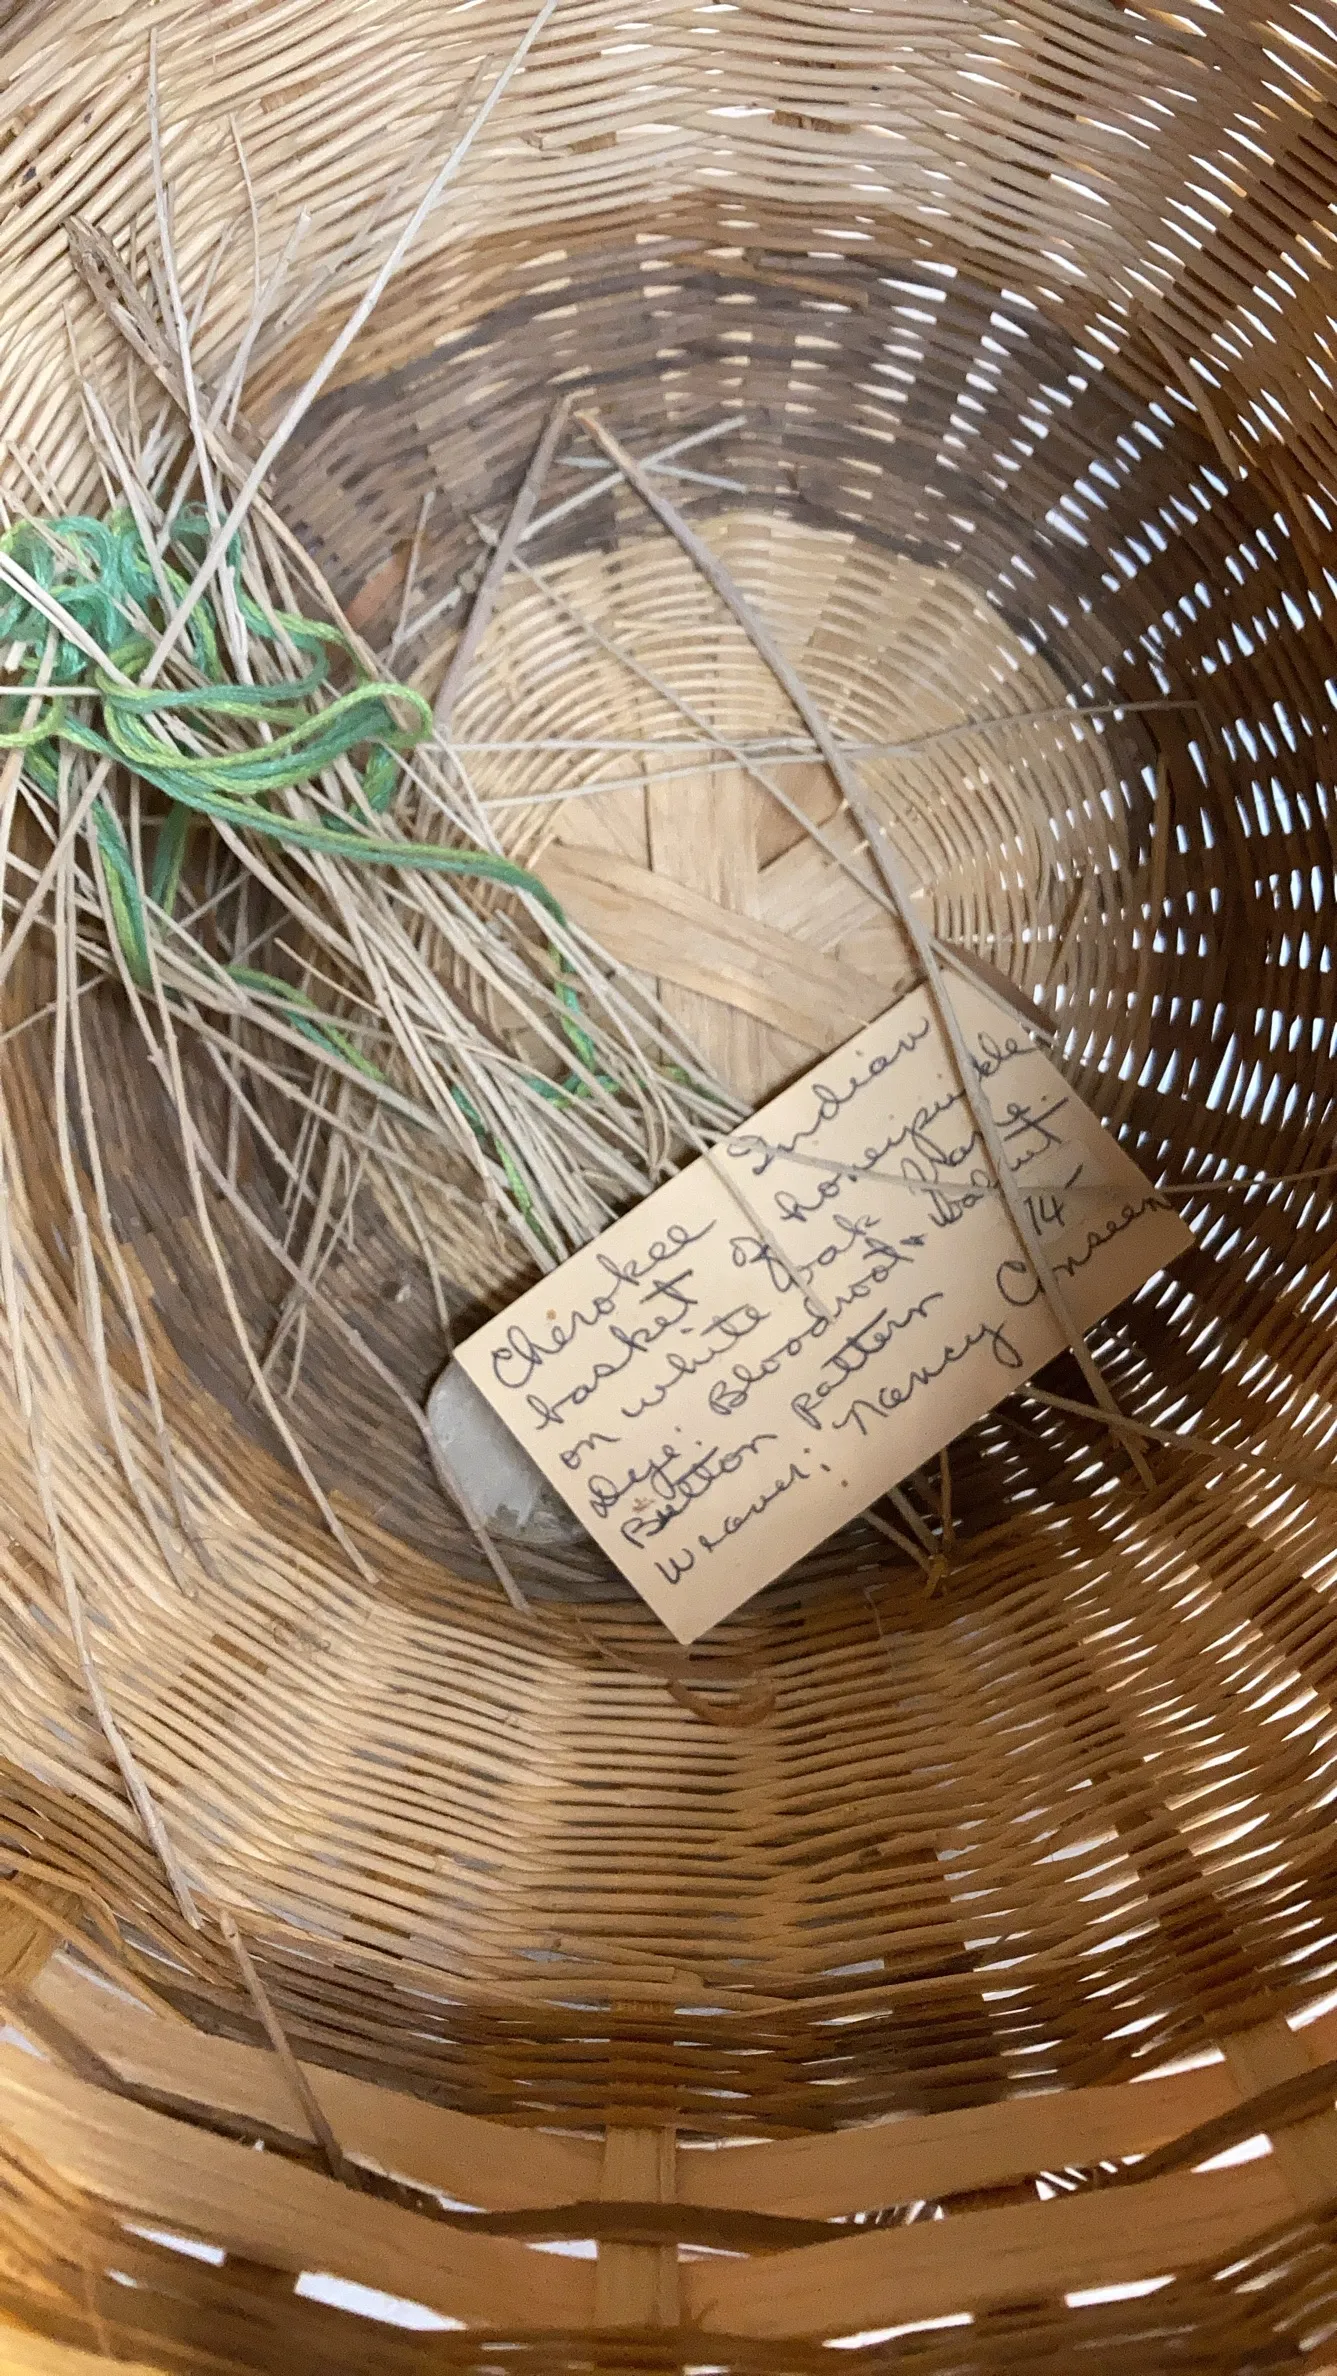 Cherokee Indian
basket of honeysuckle
on white oak frame.
Dye: Bloodroot & Walnut
Button Pattern 14-
Weaver: Nancy Conseen